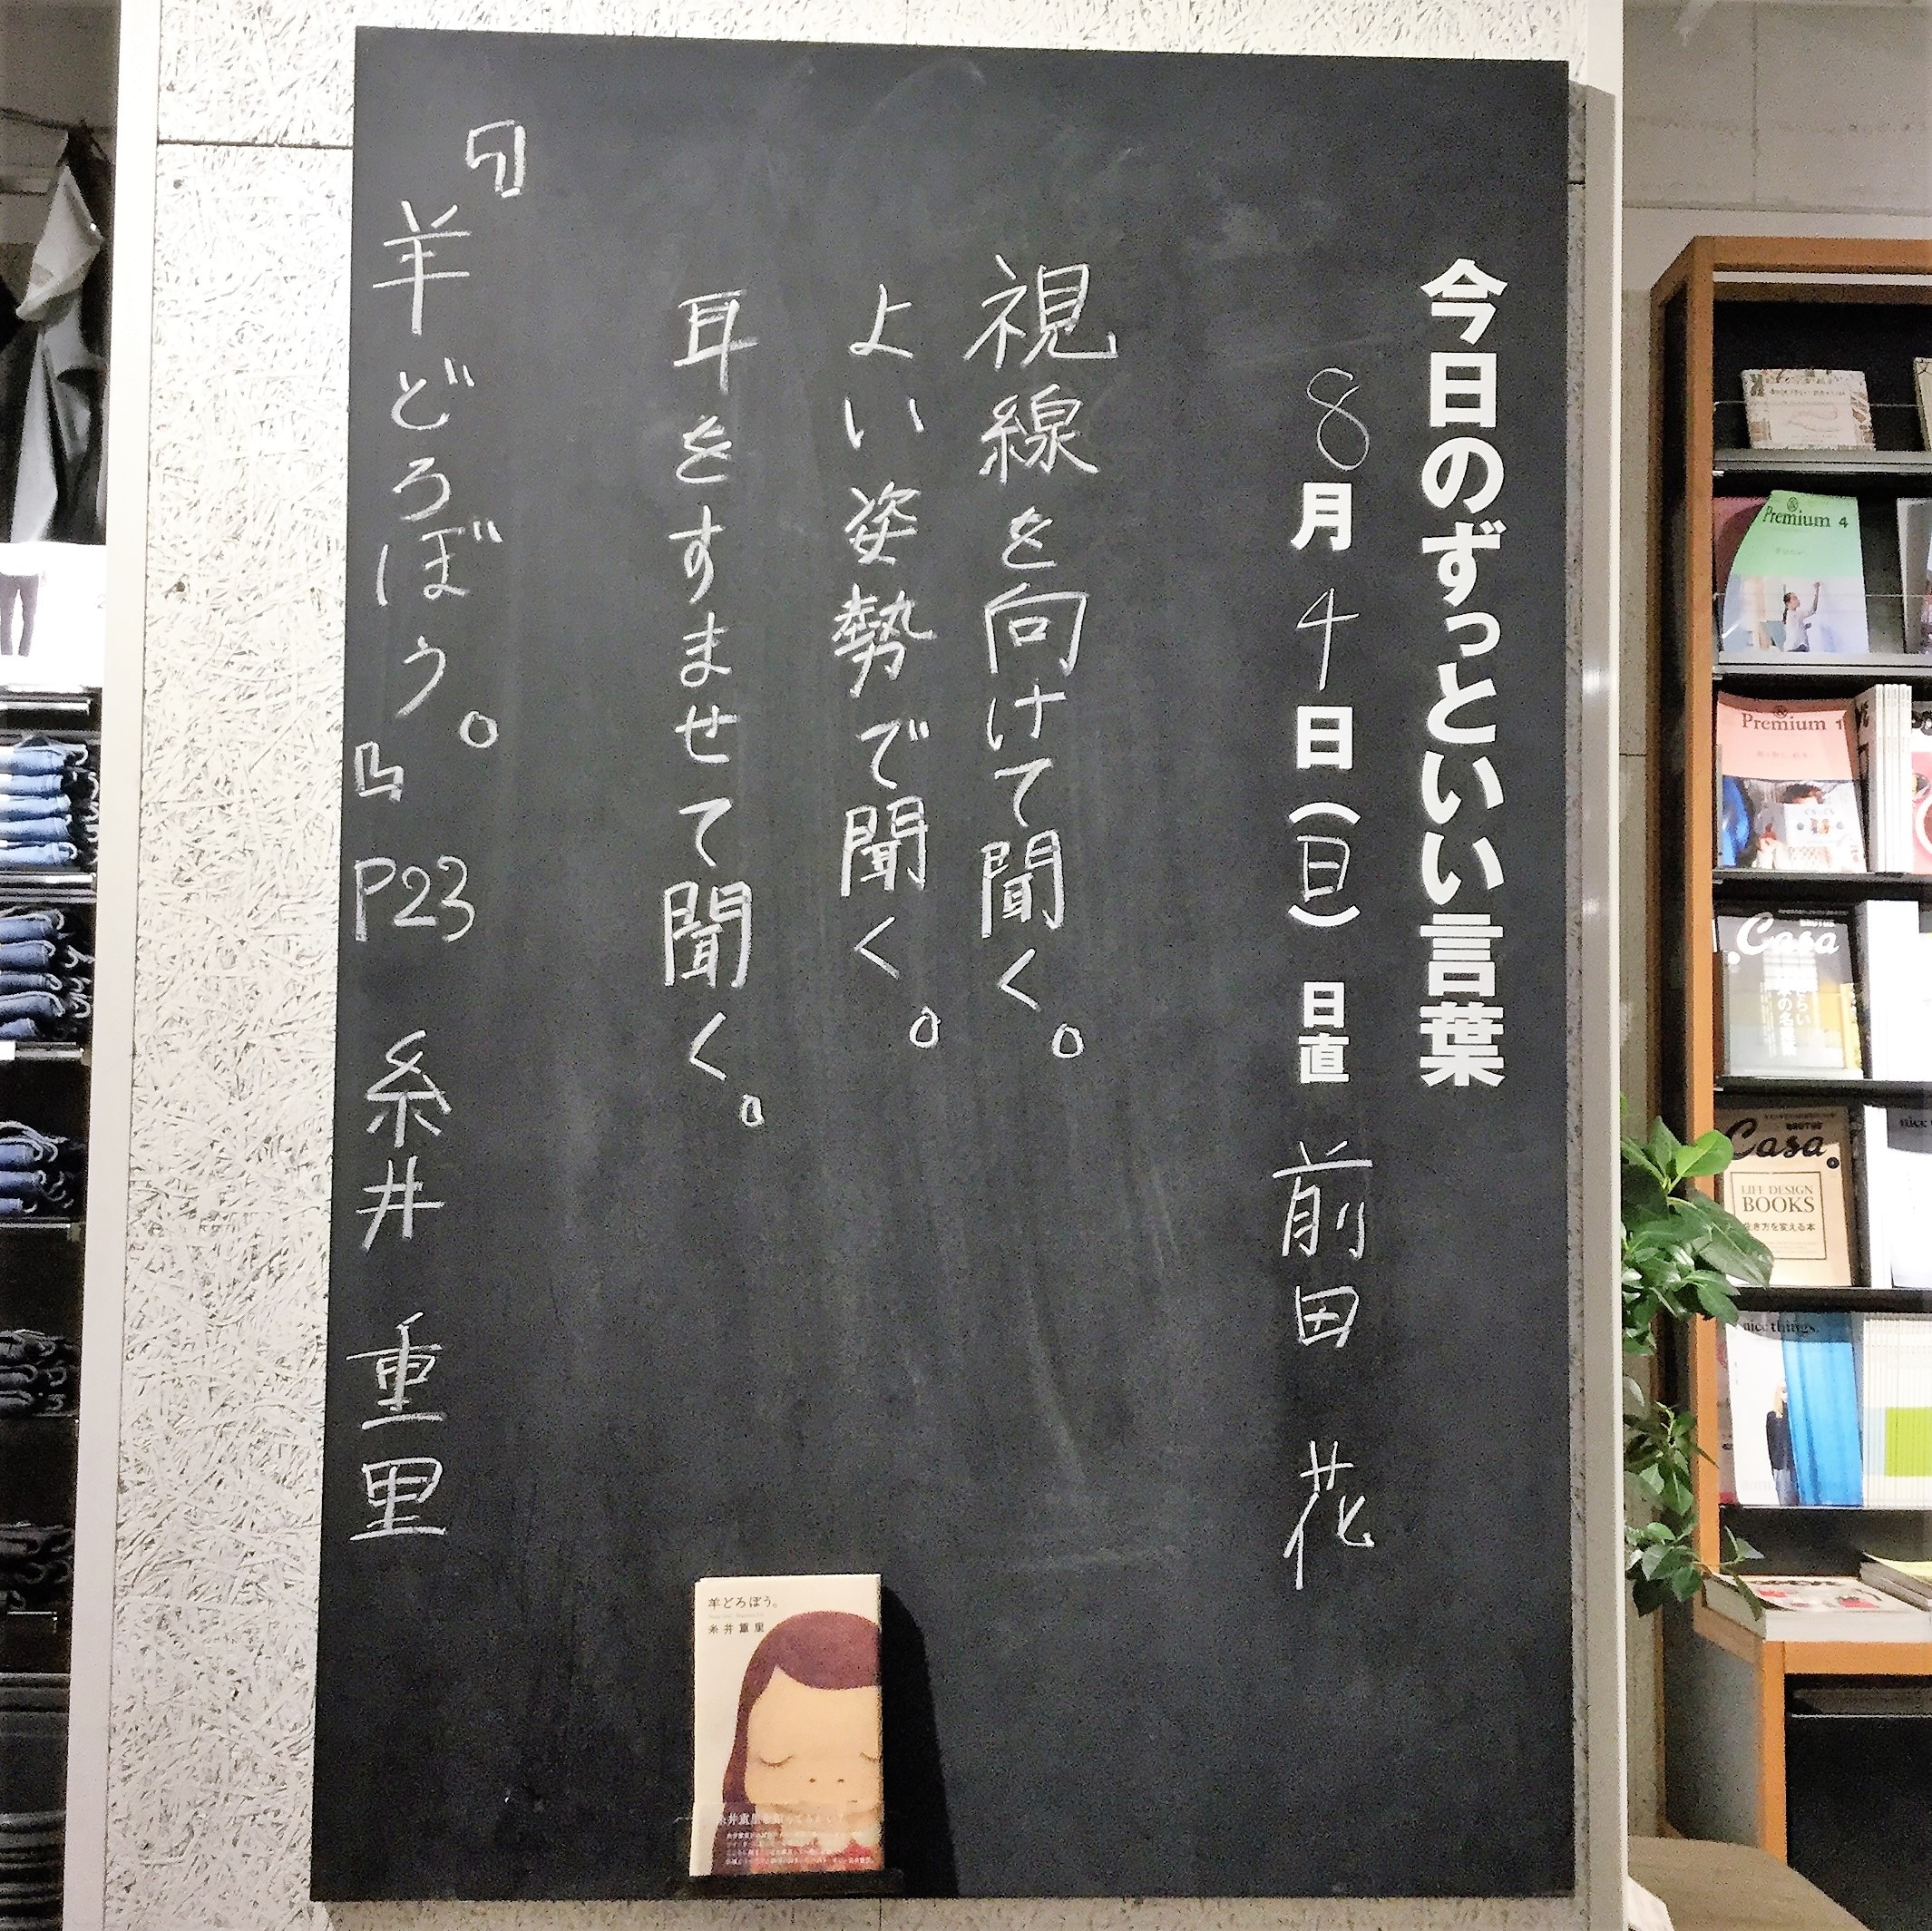 今日のずっといい言葉
8月4日(日) 日直 前田 花
視線を向けて聞く。
よい姿勢で聞く。
耳をすませて聞く。
『羊どろぼう。』P23 糸井 重里
羊どろぼう。
糸井重里
Premium 4
Premium
Casa
Casa
LIFE DESIGN
BOOKS
生き方を変える本
nice things.